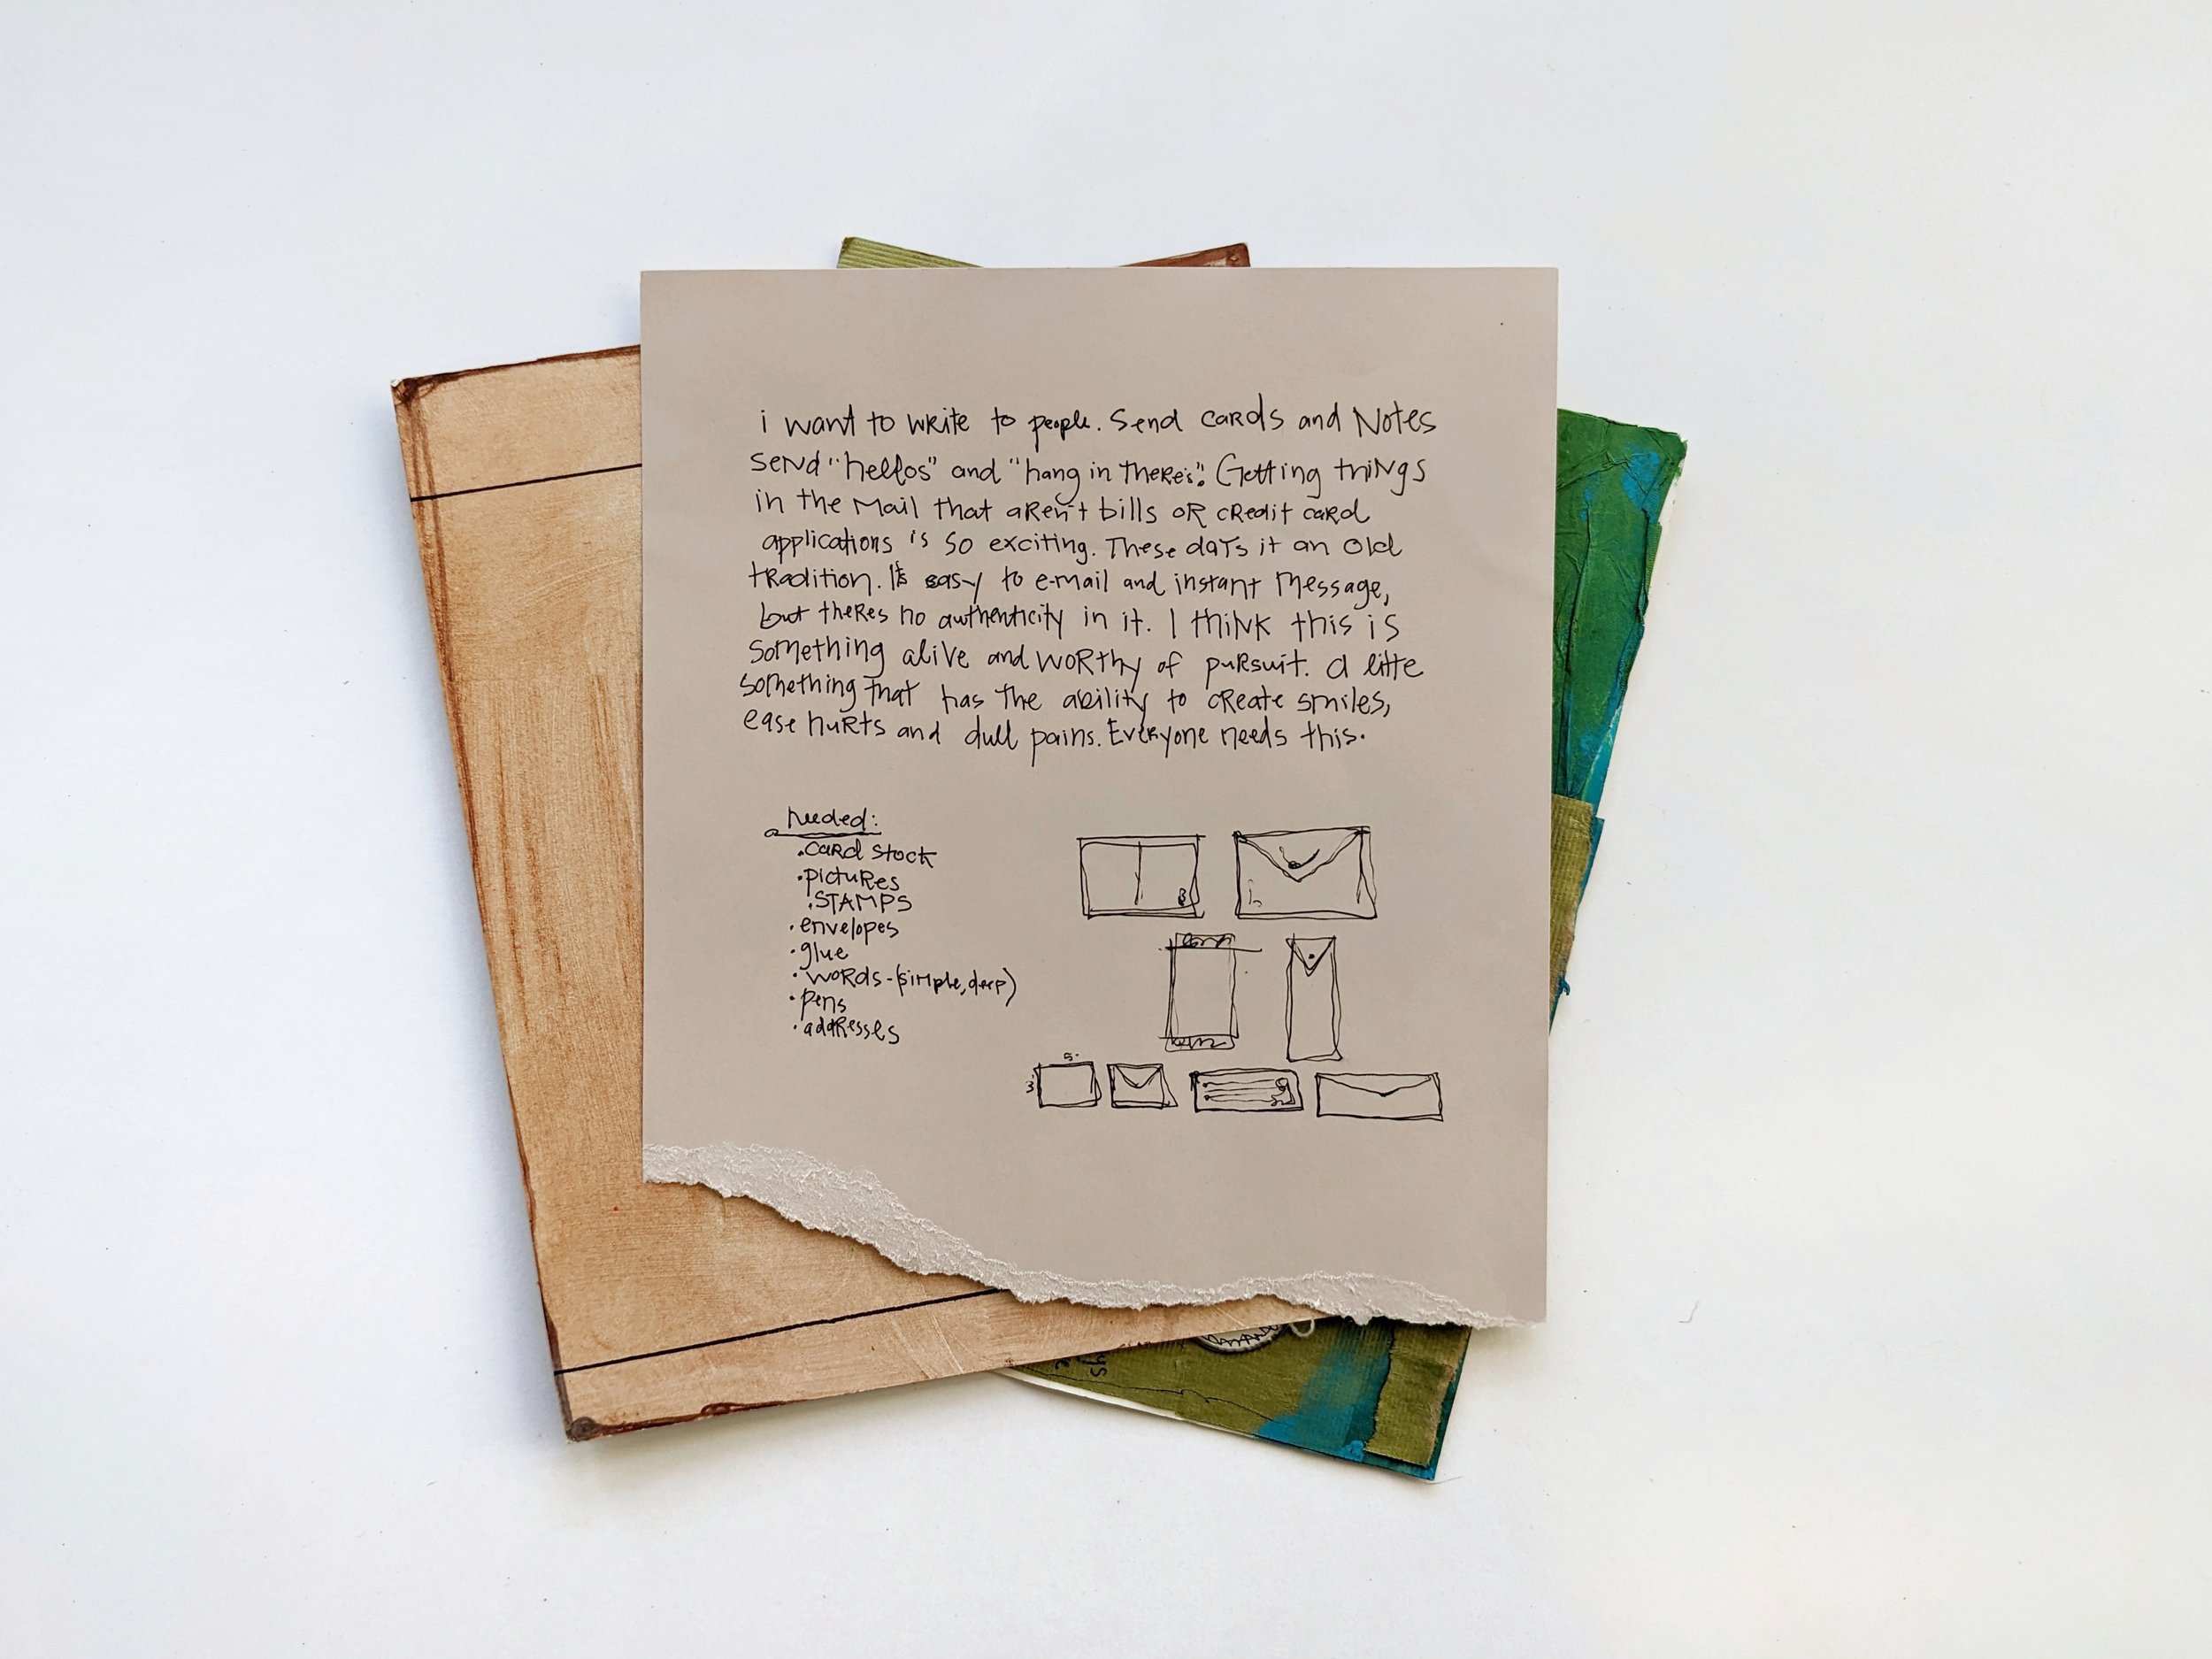 i want to write to people. Send cards and Notes
send "hellos" and "hang in there's". Getting things
in the mail that aren't bills or credit card
applications is so exciting. These days it an old
tradition. It's easy to e-mail and instant message,
but theres no authenticity in it. I think this is
something alive and worthy of pursuit. a litte
something that has the ability to create smiles,
ease hurts and dull pains. Everyone needs this.
needed:
• card stock
• pictures
• STAMPS
• envelopes
• glue
• words - (simple, deep)
• pens
• addresses
5"
3"